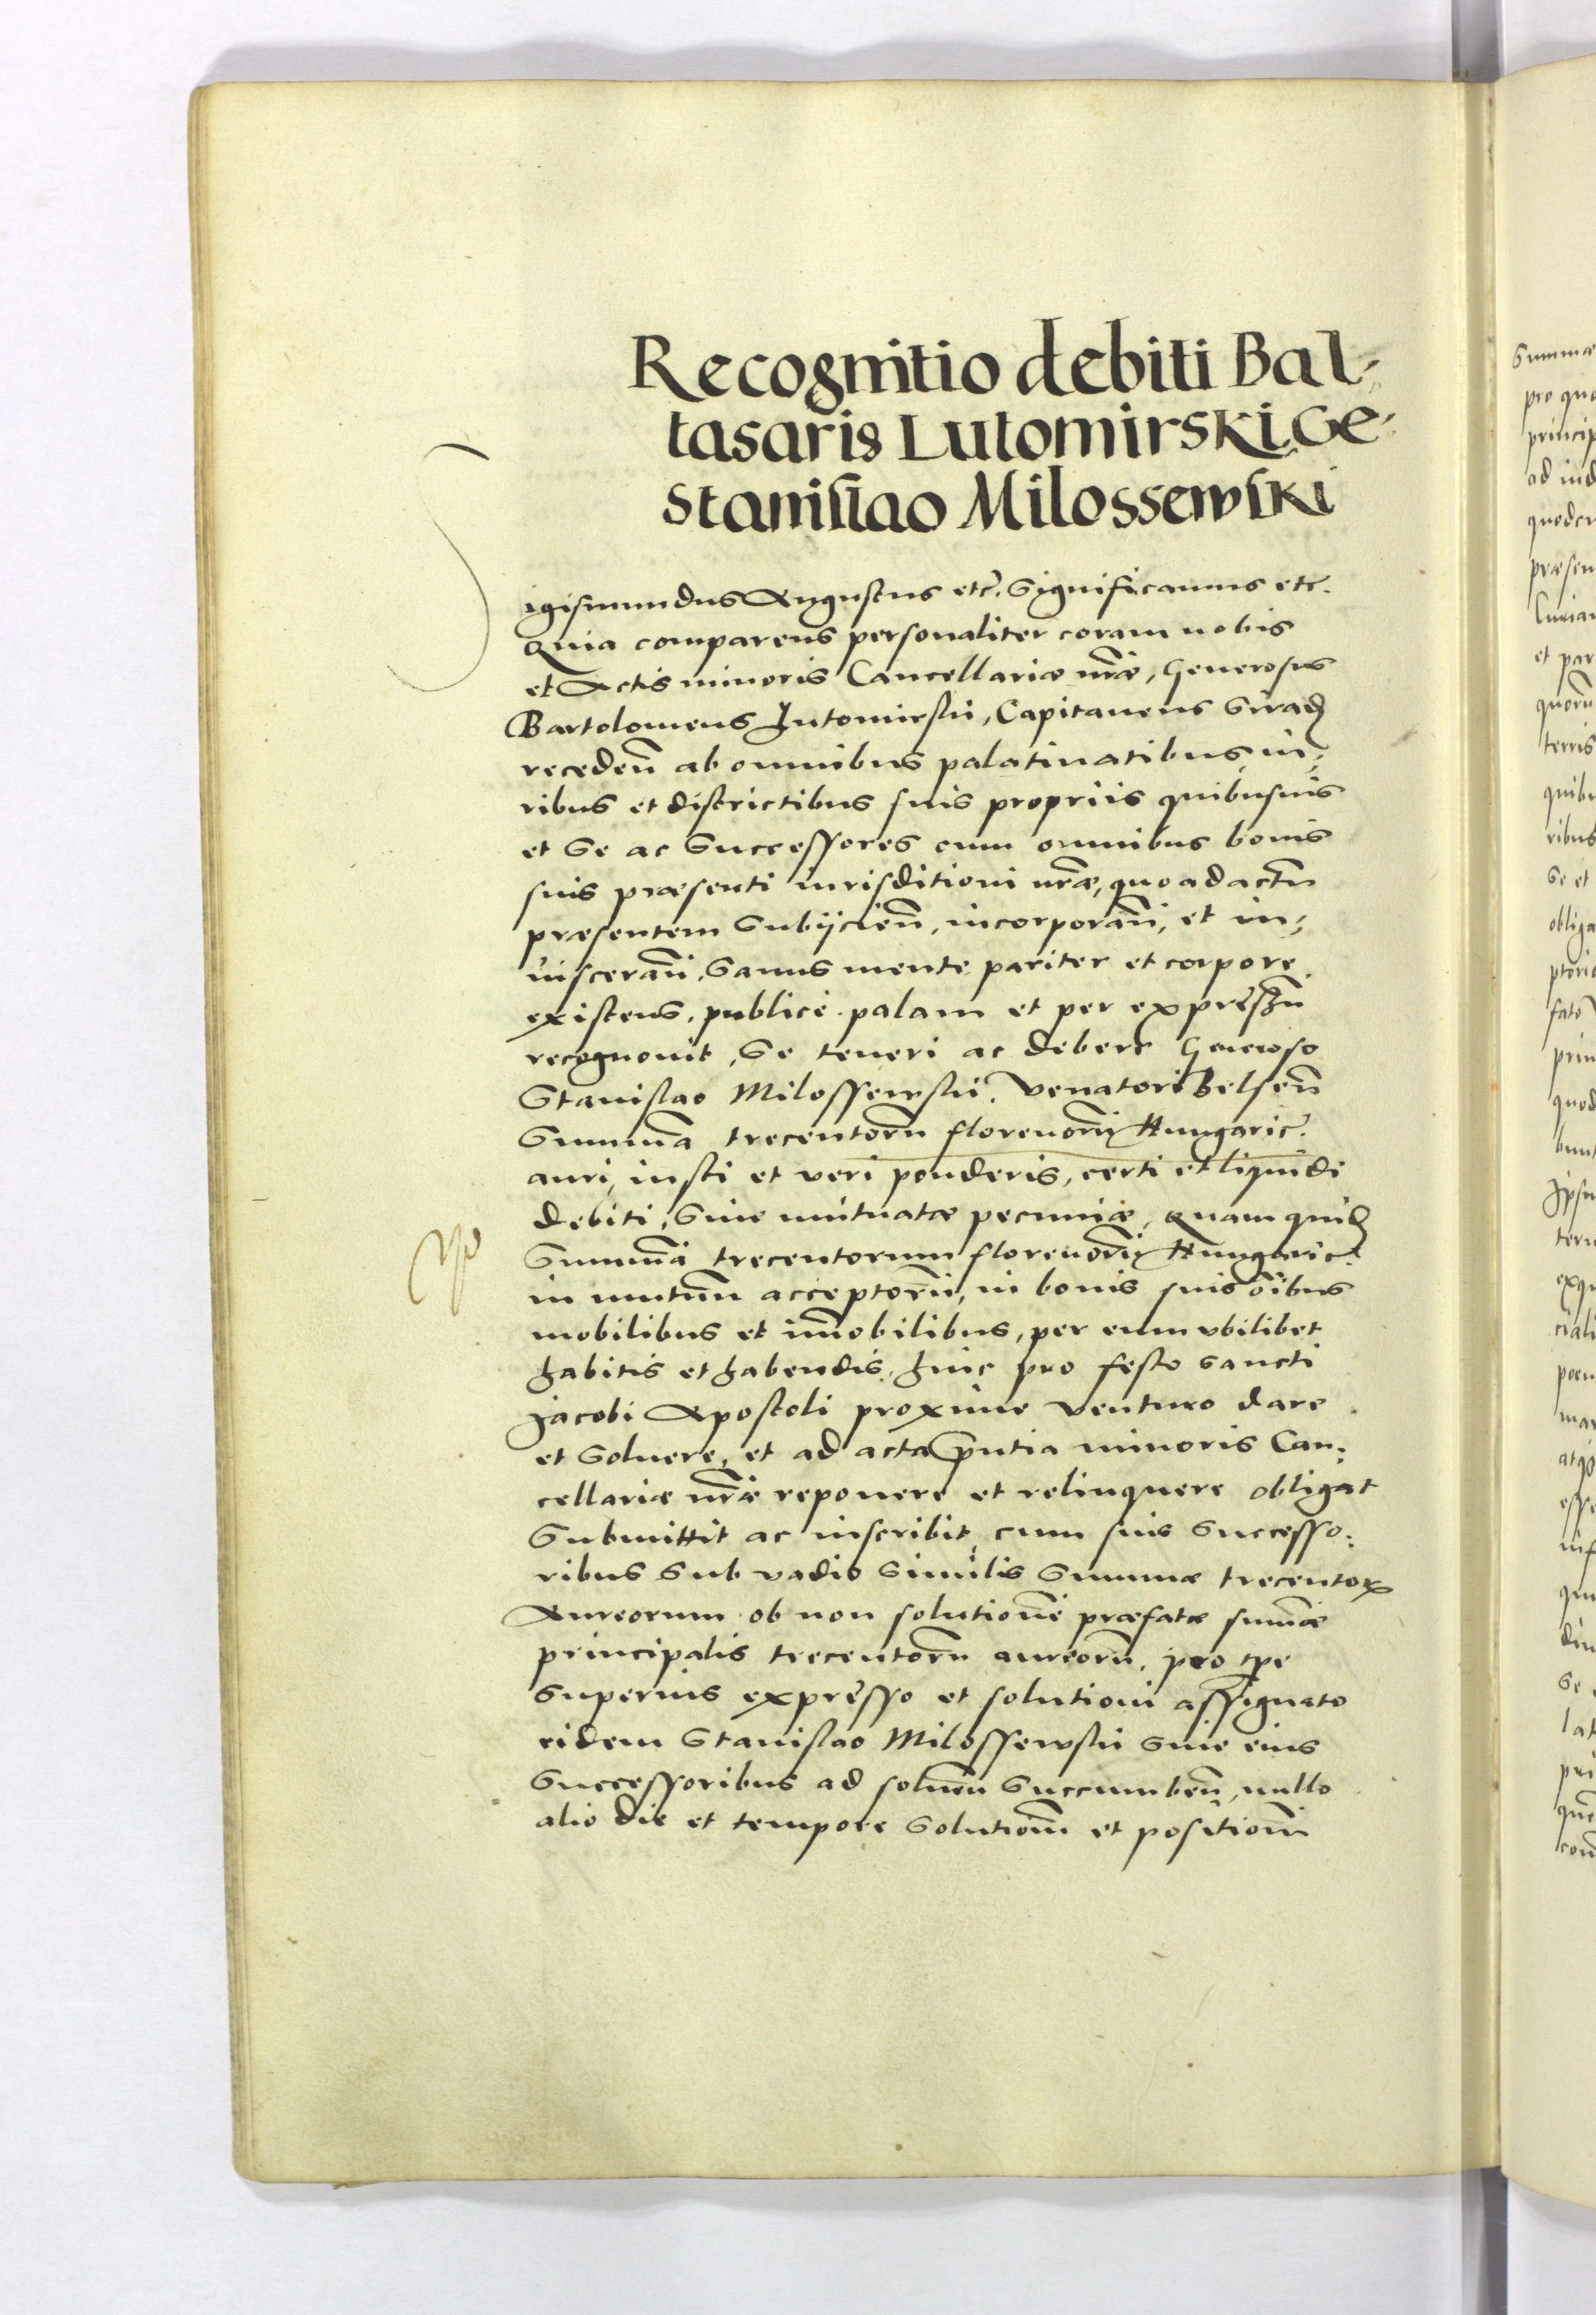 Recognitio debiti Bal-
tasaris Lutomirski, Ge-
Stanislao Milossewski
igismundus Augustus etc̃. Significamus etc.
Quia comparens personaliter coram nobis
et Actis minoris Cancellariæ nr̃æ, Generosus
Bartolomeus Lutomirski, Capitaneus Sirad
receden̄ ab omnibus palatinatibus, iu-
ribus et districtibus suis propriis quibusuis
et Se ac Successores cum omnibus bonis
suis præsenti iurisditioni nr̃æ, quo ad actū
præsentem Subijcien̄, incorporan̄, et in-
uisceran̄. Sanus mente pariter et corpore
existens, publicè palam et per expressū
recognouit, Se teneri ac debere Generoso
Stanislao Milossewski, Venatori Belsen̄
Summā trecentorū florenorū Hungaric̃.
auri, iusti et veri ponderis, certi et liquidi
debiti, Siue mutuatæ pecuniæ, Quam quid
Summā trecentorum florenorū Hungaric̃.
in mutuū acceptorū, in bonis suis oĩbus
mobilibus et im̄obilibus, per eum vbilibet
habitis et habendis, hinc pro festo sancti
Jacobi Apostoli proxime venturo dare
et Soluere, et ad acta p̃ntia minoris Can-
cellariæ nr̃æ reponere et relinquere obligat
Submittit ac inscribit, cum suis Successo-
ribus Sub vadio Similis Summæ trecentor̃
Aureorum ob non solutionē præfatæ sum̄æ
principalis trecentorū aureorū, pro tp̃e
Superius expresso et solutioni assignato
eidem Stanislao Milossewski Siue eius
Successoribus ad soluen̄ Succumben̄, nullo
alio die et tempore Solutioni et positioni